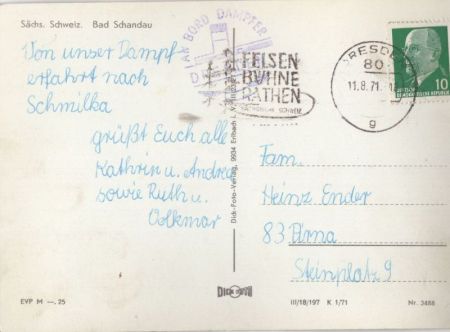 Sächs. Schweiz. Bad Schandau
Von unser Dampf
erfahrt nach
Schmilka
grüßt Euch alle
Kathrin u. Andrea
sowie Ruth u.
Volkmar
AN BORD DAMPFER
FELSEN
BÜHNE
RATHEN
DRESDEN
80
11.8.71
g
10
Fam.
Heinz Ender
83 Pirna
Steinplatz 9
Dick-Foto-Verlag, 9934 Erlbach i. V.
DICK
EVP M —.25
III/18/197 K 1/71
Nr. 3488